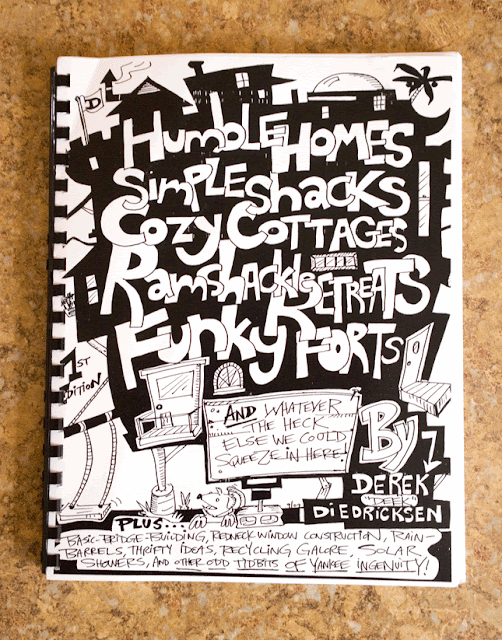 D
Humble Homes
Simple Shacks
Cozy Cottages
Ramshackle Retreats
Funky Forts
1st
Edition
And whatever
the heck
else we could
squeeze in here!
By
Derek
"Deek"
Diedricksen
Plus...
Basic-Bridge-Building, Redneck Window Construction, Rain-
Barrels, Thrifty Ideas, Recycling Galore, Solar
Showers, and other odd tidbits of Yankee Ingenuity!